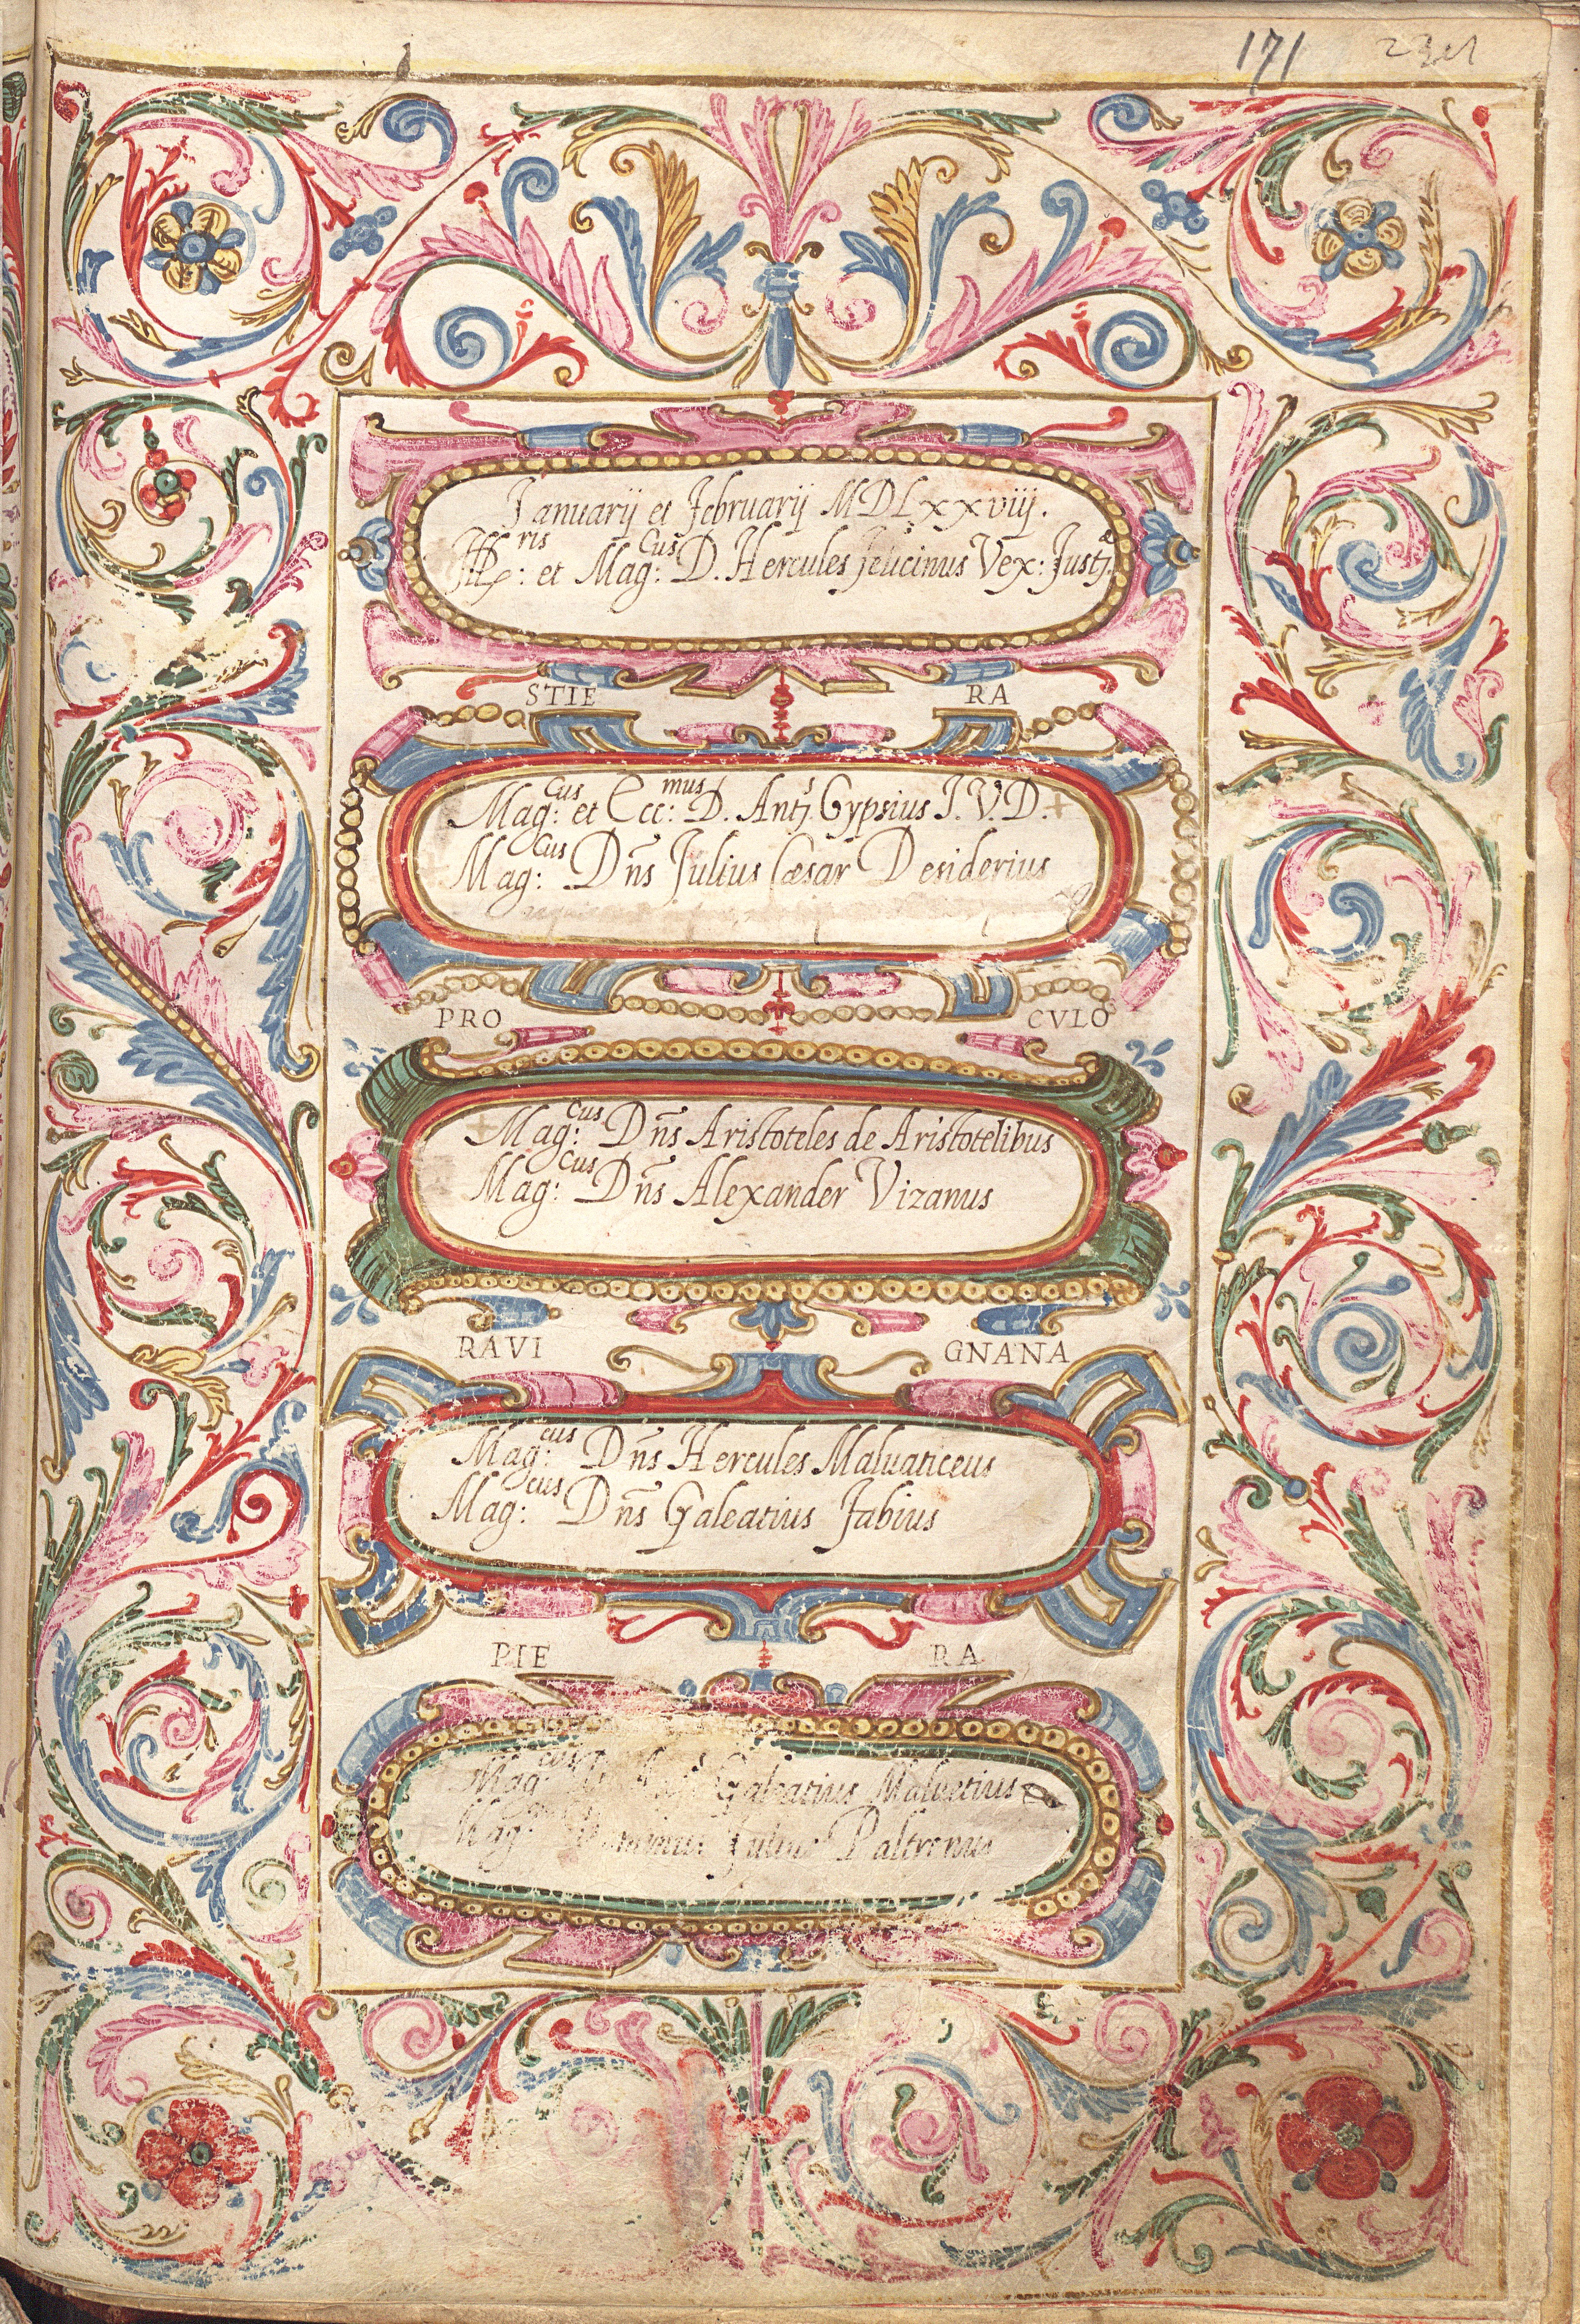 171
Januarij et Februarij MDLxxviij.
Ill:ris et Mag:cus D. Hercules felicinus Vex: Justæ.
STIE RA
Mag:cus et Ecc:mus D. Ants. Gypsius I.V.D.
Mag:cus Dñs Julius Cæsar Desiderius
PRO CVLO
Mag:cus Dñs Aristoteles de Aristotelibus
Mag:cus Dñs Alexander Vizanus
RAVI GNANA
Mag:cus Dñs Hercules Maluaticeus
Mag:cus Dñs Galeatius Fabius
PIE RA
Mag:cus Galeatius Maluetius
Mag: Julius Paltronus